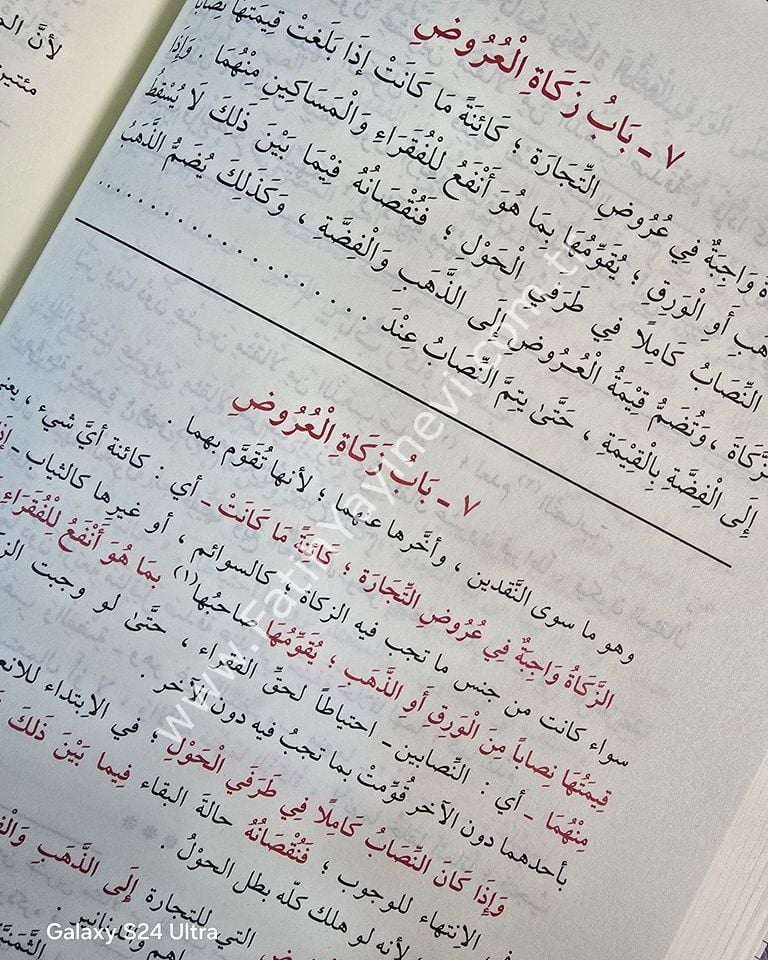 لأنَّ
مئتين
٧ - بَابُ زَكَاةِ الْعُرُوضِ
وَاجِبَةٌ فِي عُرُوضِ التِّجَارَةِ ؛ كَائِنَةً مَا كَانَتْ إِذَا بَلَغَتْ قِيمَتُهَا نِصَابًا
أَوِ الْوَرِقِ ؛ يُقَوِّمُهَا بِمَا هُوَ أَنْفَعُ لِلْفُقَرَاءِ وَالْمَسَاكِينِ مِنْهُمَا . وَإِذَا
النِّصَابُ كَامِلًا فِي طَرَفَيِ الْحَوْلِ ؛ فَنُقْصَانُهُ فِيمَا بَيْنَ ذَلِكَ لَا يُسْقِطُ
الزَّكَاةَ ، وَتُضَمُّ قِيمَةُ الْعُرُوضِ إِلَى الذَّهَبِ وَالْفِضَّةِ ، وَكَذَلِكَ يُضَمُّ الذَّهَبُ
إِلَى الْفِضَّةِ بِالْقِيْمَةِ ، حَتَّىٰ يَتِمَّ النِّصَابُ عِنْدَ . . . . . . . . . . . . . . . . . . . .
٧ - بَابُ زَكَاةِ الْعُرُوضِ
وهو ما سوى النَّقدين ، وأخَّرها عنهما ؛ لأنها تُقَوَّم بهما .
الزَّكَاةُ وَاجِبَةٌ فِي عُرُوضِ التِّجَارَةِ ؛ كَائِنَةً مَا كَانَتْ - أي : كائنة أيَّ شيء ، يعني
سواء كانت من جنس ما تجب فيه الزكاة ؛ كالسوائم ، أو غيرها كالثياب - إِذَا
قِيمَتُهَا نِصَاباً مِنَ الْوَرِقِ أَوِ الذَّهَبِ ؛ يُقَوِّمُهَا صاحبُها(١) بِمَا هُوَ أَنْفَعُ لِلْفُقَرَاءِ
مِنْهُمَا - أي : النِّصابين - احتياطاً لحقِّ الفقراء ، حتَّىٰ لو وجبت الزكاة
بأحدهما دون الآخر قُوِّمتْ بما تجبُ فيه دون الآخر .
وَإِذَا كَانَ النِّصَابُ كَامِلًا فِي طَرَفَيِ الْحَوْلِ ؛ في الابتداء للانعقاد
الانتهاء للوجوب ؛ فَنُقْصَانُهُ حالةَ البقاء فِيمَا بَيْنَ ذَلِكَ
لأنه لو هلك كلّه بطل الحَوْلُ .
التي للتجارة إِلَى الذَّهَبِ
www.FatihYayinevi.com.tr
Galaxy S24 Ultra